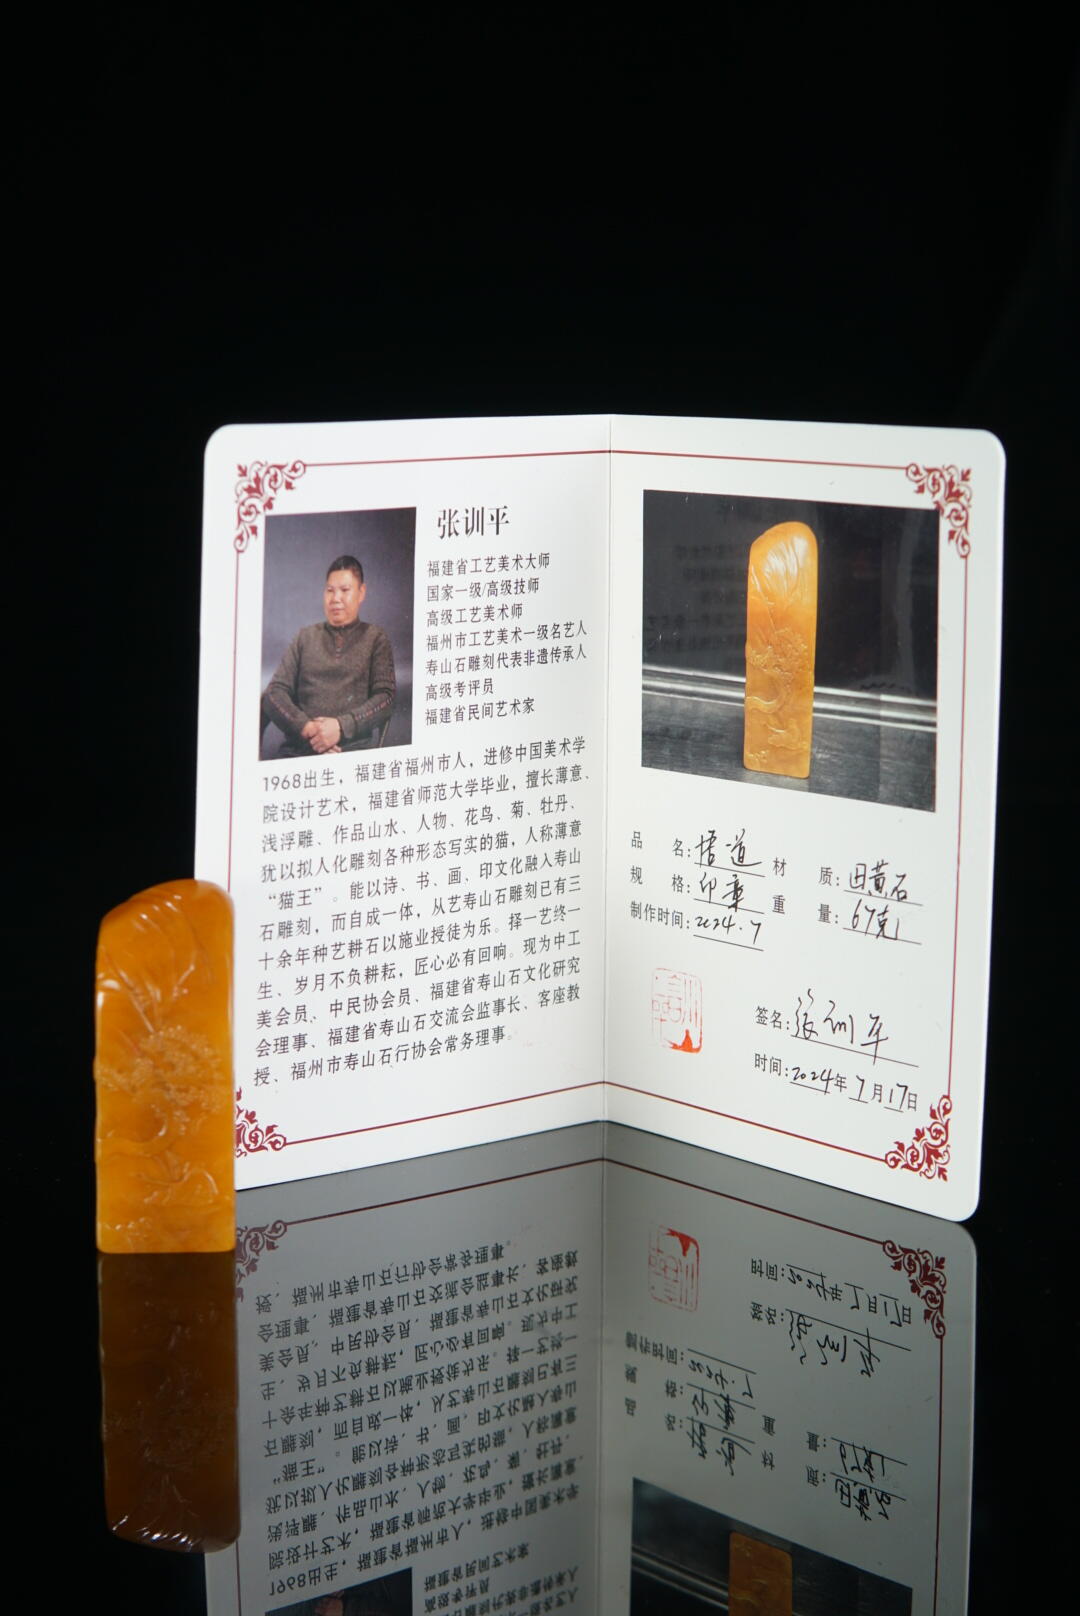 张训平
福建省工艺美术大师
国家一级/高级技师
高级工艺美术师
福州市工艺美术一级名艺人
寿山石雕刻代表非遗传承人
高级考评员
福建省民间艺术家
1968出生，福建省福州市人，进修中国美术学
院设计艺术，福建省师范大学毕业，擅长薄意、
浅浮雕、作品山水、人物、花鸟、菊、牡丹、
犹以拟人化雕刻各种形态写实的猫，人称薄意
“猫王”。能以诗、书、画、印文化融入寿山
石雕刻，而自成一体，从艺寿山石雕刻已有三
十余年种艺耕石以施业授徒为乐。择一艺终一
生、岁月不负耕耘，匠心必有回响。现为中工
美会员、中民协会员、福建省寿山石文化研究
会理事、福建省寿山石交流会监事长、客座教
授、福州市寿山石行协会常务理事。
品 名：悟道 材 质：田黄石
规 格：印章 重 量：67克
制作时间：2024.7
签名：张训平
时间：2024年7月17日